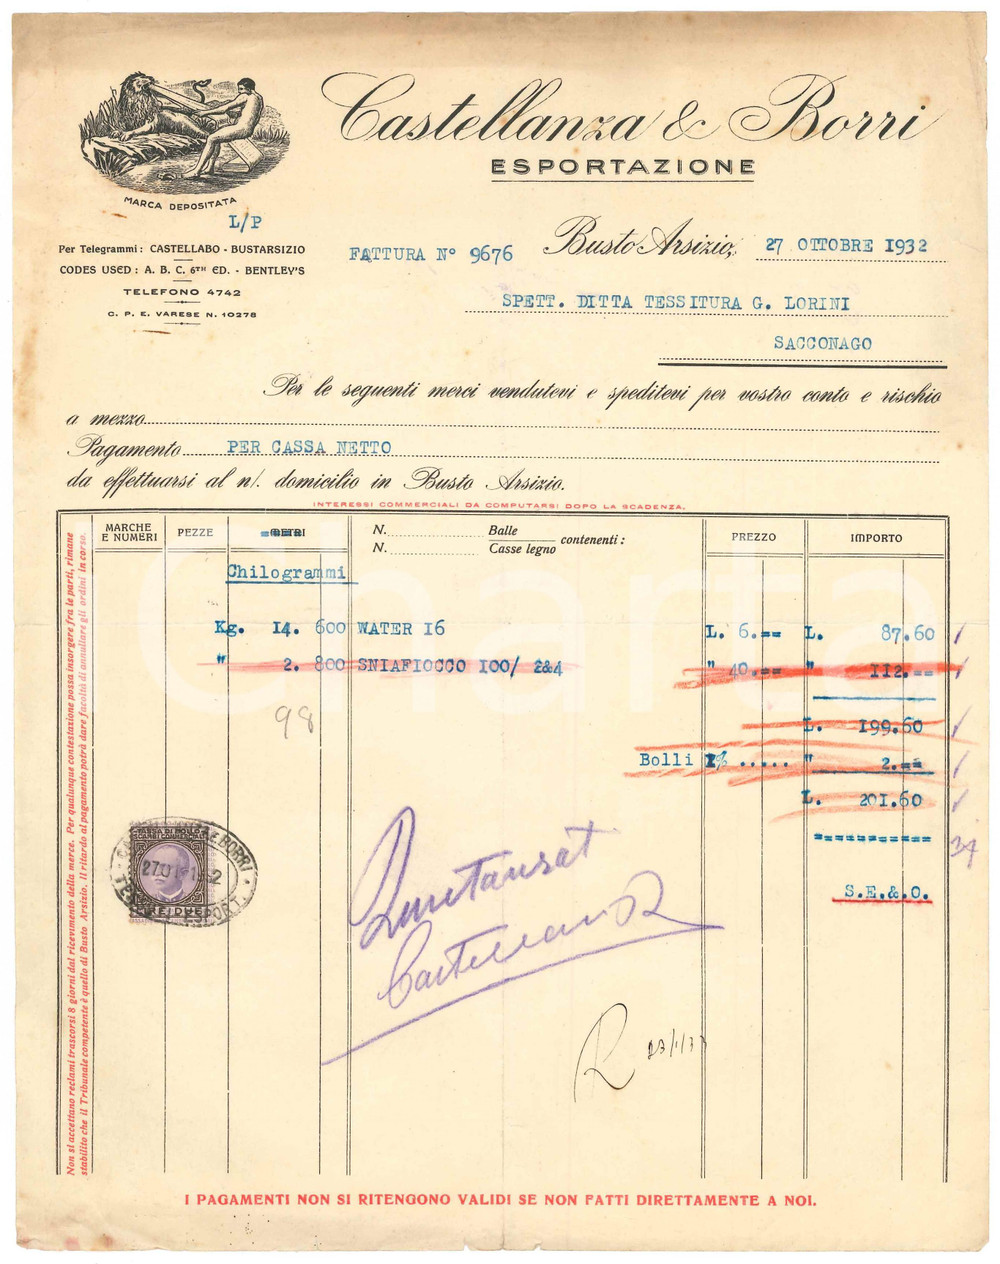 Castellanza & Borri
ESPORTAZIONE
MARCA DEPOSITATA
L/P
Per Telegrammi: CASTELLABO - BUSTARSIZIO
CODES USED: A. B. C. 6TH ED. - BENTLEY'S
TELEFONO 4742
C. P. E. VARESE N. 10278
FATTURA N° 9676
Busto Arsizio, 27 OTTOBRE 1932
SPETT. DITTA TESSITURA G. LORINI
SACCONAGO
Per le seguenti merci vendutevi e speditevi per vostro conto e rischio
a mezzo
Pagamento PER CASSA NETTO
da effettuarsi al n/. domicilio in Busto Arsizio.
INTERESSI COMMERCIALI DA COMPUTARSI DOPO LA SCADENZA.
MARCHE E NUMERI PEZZE METRI N. Balle N. Casse legno contenenti: PREZZO IMPORTO
Chilogrammi
Kg. 14. 600 WATER 16 L. 6.== L. 87.60
" 2. 800 SNIAFIOCCO 100/ 2&4 " 40.== " 112.==
98
L. 199.60
Bolli 1% ..... " 2.==
L. 201.60
34
S.E.&.O.
TASSA DI BOLLO
SCAMBI COMMERCIALI
LIRE DUE
Castellanza
23/1/33
Non si accettano reclami trascorsi 8 giorni dal ricevimento della merce. Per qualunque contestazione possa insorgere fra le parti, rimane
stabilito che il Tribunale competente è quello di Busto Arsizio. Il ritardo al pagamento potrà dare facoltà di annullare gli ordini in corso.
I PAGAMENTI NON SI RITENGONO VALIDI SE NON FATTI DIRETTAMENTE A NOI.
Charta